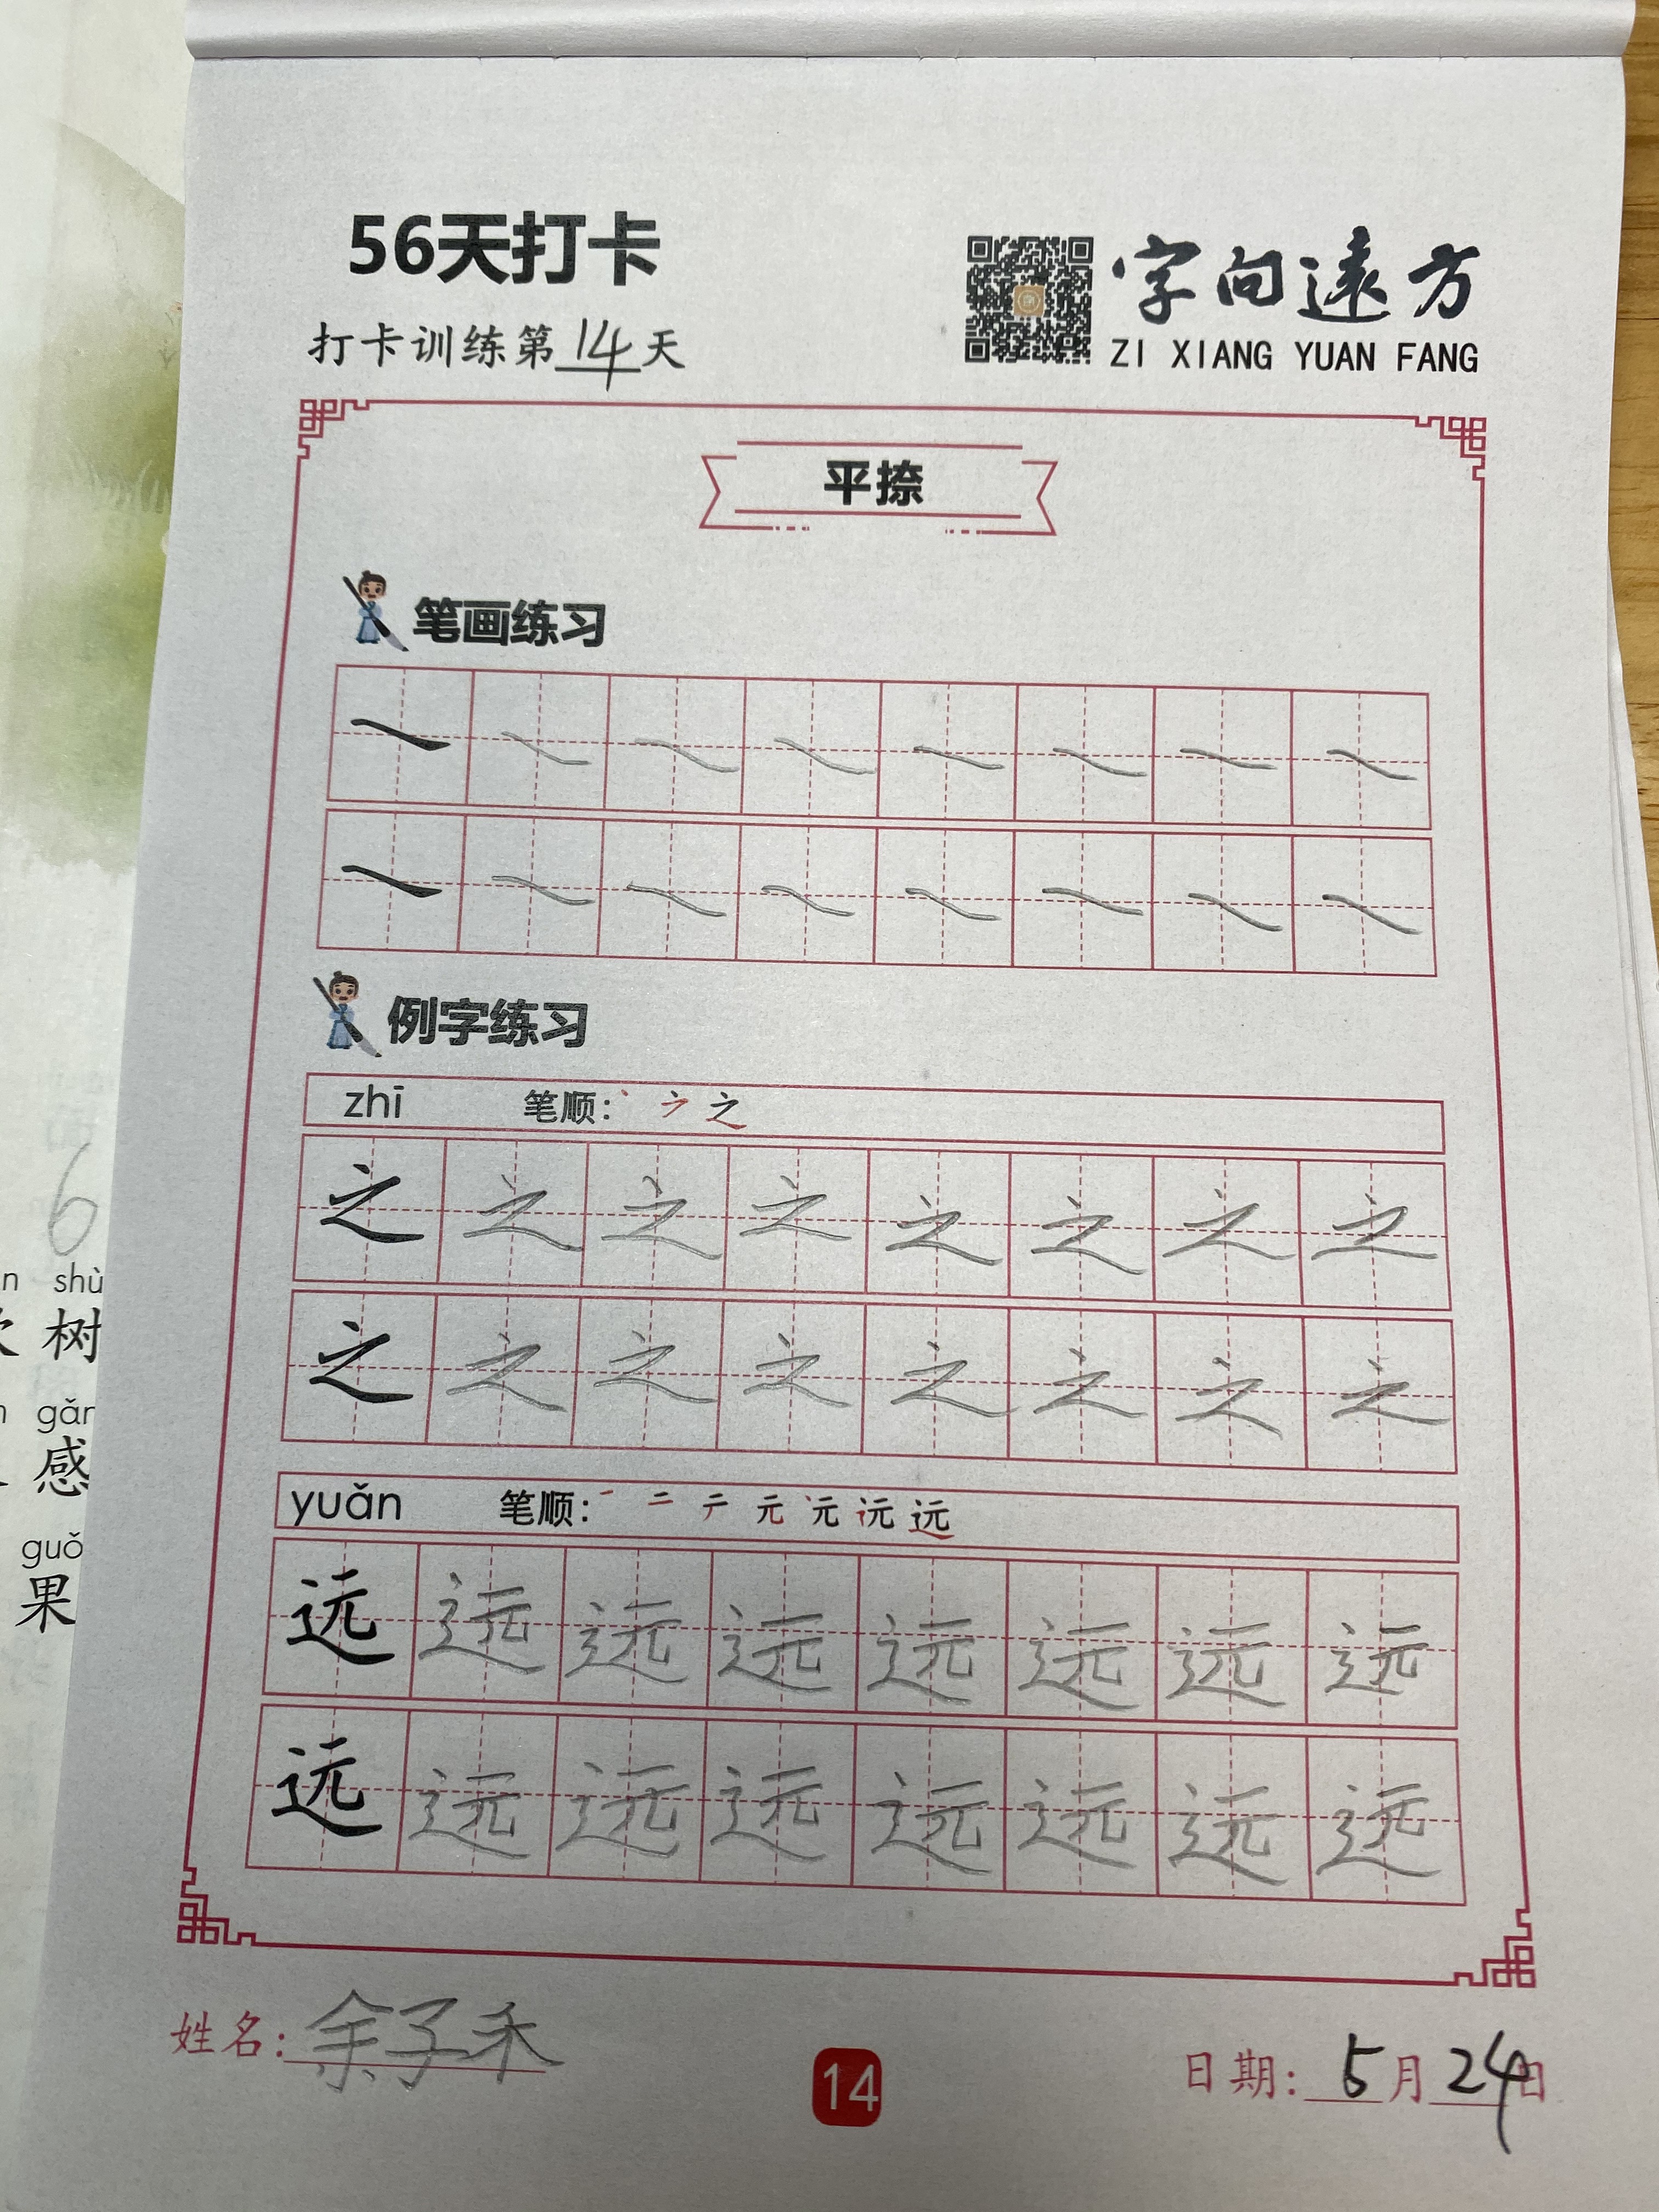 56天打卡
打卡训练第14天
字向遠方
ZI XIANG YUAN FANG
平捺
笔画练习
例字练习
zhī 笔顺：
之 之 之 之 之 之 之 之
之 之 之 之 之 之 之 之
yuǎn 笔顺： 一 二 元 远
远 远 远 远 远 远 远 远
远 远 远 远 远 远 远 远
姓名：余子禾
14
日期：5月24日
6
n shù
树
gǎn
感
guǒ
果